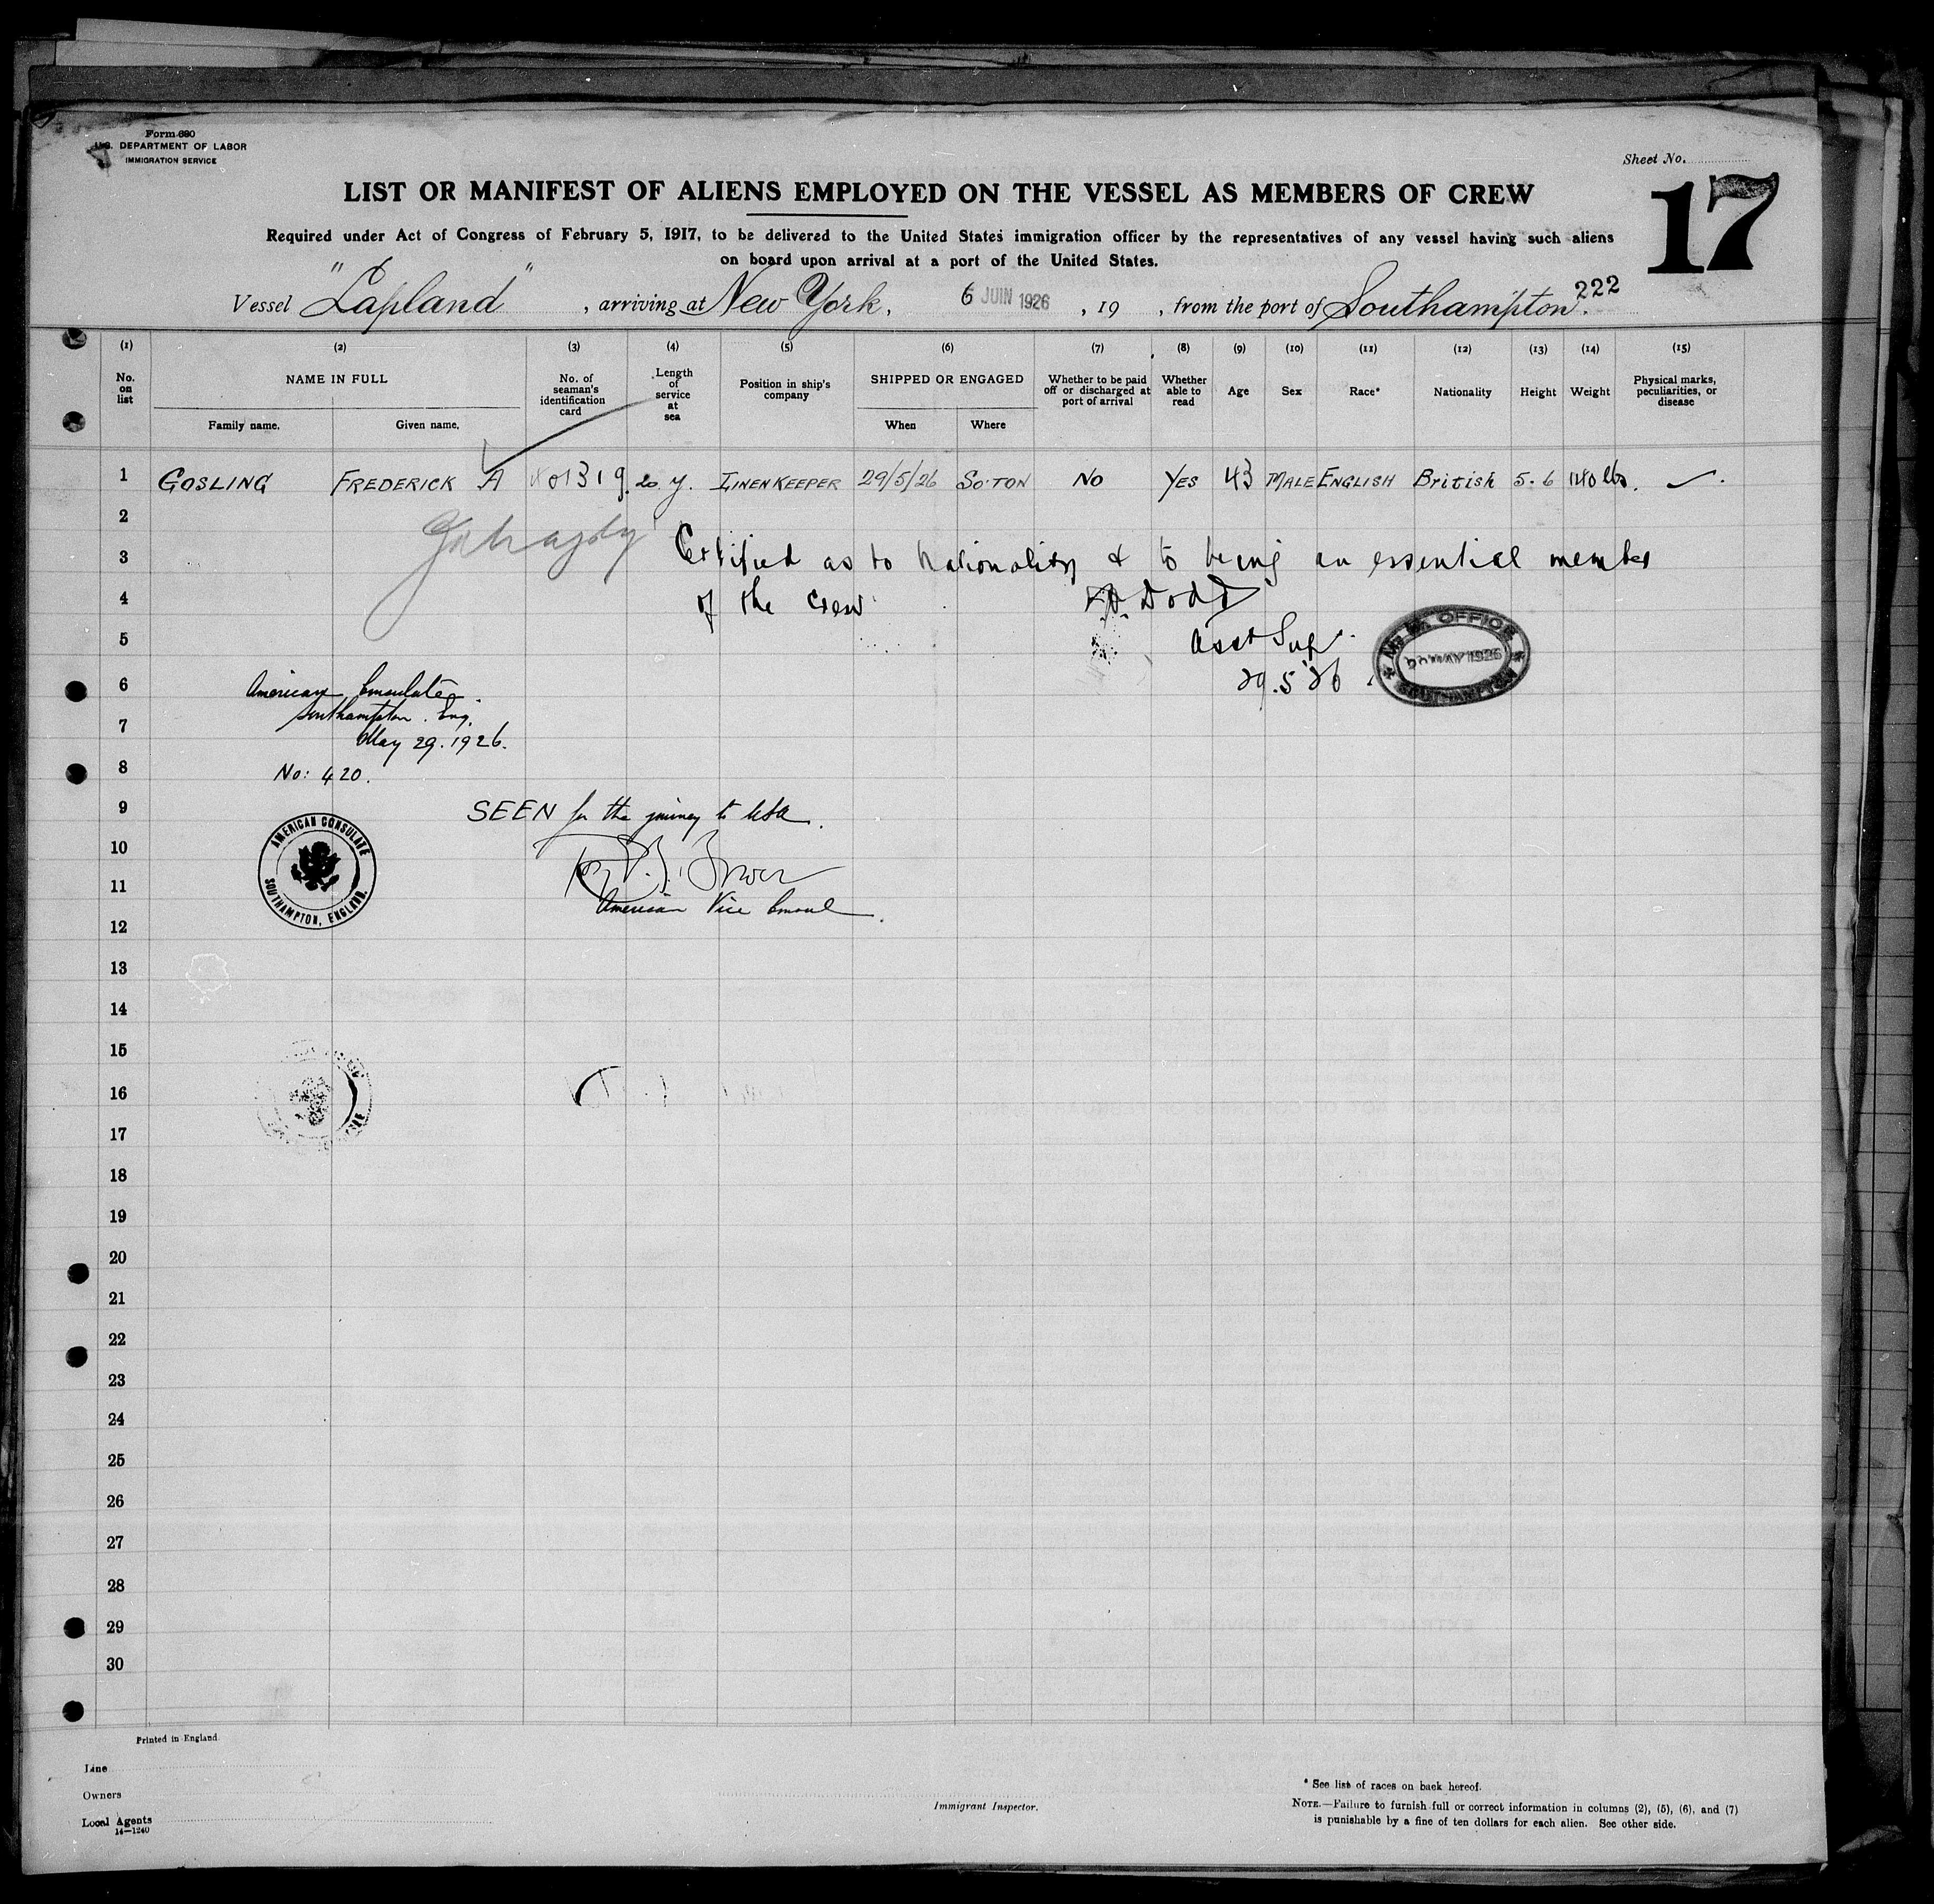 Form 680
U.S. DEPARTMENT OF LABOR
IMMIGRATION SERVICE
Sheet No.
17
LIST OR MANIFEST OF ALIENS EMPLOYED ON THE VESSEL AS MEMBERS OF CREW
Required under Act of Congress of February 5, 1917, to be delivered to the United States immigration officer by the representatives of any vessel having such aliens
on board upon arrival at a port of the United States.
Vessel "Lapland", arriving at New York, 6 JUIN 1926, 19 , from the port of Southampton. 222
(1) (2) (3) (4) (5) (6) (7) (8) (9) (10) (11) (12) (13) (14) (15)
No. on list
NAME IN FULL
Family name. Given name.
No. of seaman's identification card
Length of service at sea
Position in ship's company
SHIPPED OR ENGAGED
When Where
Whether to be paid off or discharged at port of arrival
Whether able to read
Age
Sex
Race*
Nationality
Height
Weight
Physical marks, peculiarities, or disease
1 GOSLING FREDERICK A 01319. 20 y. LINENKEEPER 29/5/26 SO'TON NO YES 43 MALE ENGLISH British 5.6 140 lbs.
2
3 Certified as to Nationality & to being an essential member
4 of the crew Dodd
5 Asst Sup
M. M. OFFICE
MAY 1926
SOUTHAMPTON
29.5.26
6 American Consulate
Southampton. Eng.
7 May 29. 1926.
8 No: 420.
9 SEEN for the journey to USA.
AMERICAN CONSULATE
SOUTHAMPTON, ENGLAND.
10
11 American Vice Consul
12
13
14
15
16
17
18
19
20
21
22
23
24
25
26
27
28
29
30
Printed in England
Line
Owners
Local Agents
14—1240
Immigrant Inspector.
* See list of races on back hereof.
NOTE.—Failure to furnish full or correct information in columns (2), (5), (6), and (7)
is punishable by a fine of ten dollars for each alien. See other side.